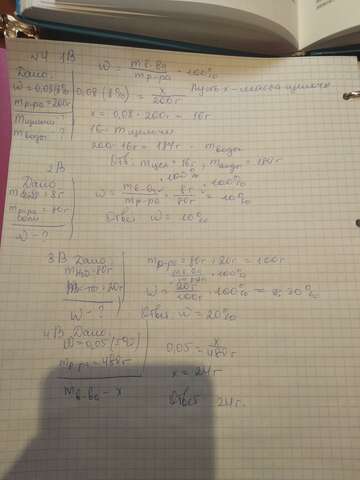 №4 1В
Дано:
w = 0,08(8%)
mр-ра = 200г
mщелочи - ?
mводы - ?
w = mв-ва / mр-ра · 100%
0,08 (8%) = x / 200г Пусть x - масса щелочи
x = 0,08 · 200г = 16г
16 - mщелочи
200-16г = 184г - mводы
Отв: mщел = 16г, mводы = 184г
2В
Дано
= 8г
= 80г
w - ?
w = mв-ва / mр-ра · 100% = 8г / 80г · 100% = 10%
Ответ w = 10%
3В Дано
mH2O = 80г
= 20г
w - ?
mр-ра = 80г + 20г = 100г
· 100%
w = 20г / 100г · 100% = 20%
Ответ: w = 20%
4В Дано:
w = 0,05 (5%)
mр-ра = 480г
mв-ва - x
0,05 = x / 480г
x = 24г
Ответ 24г.